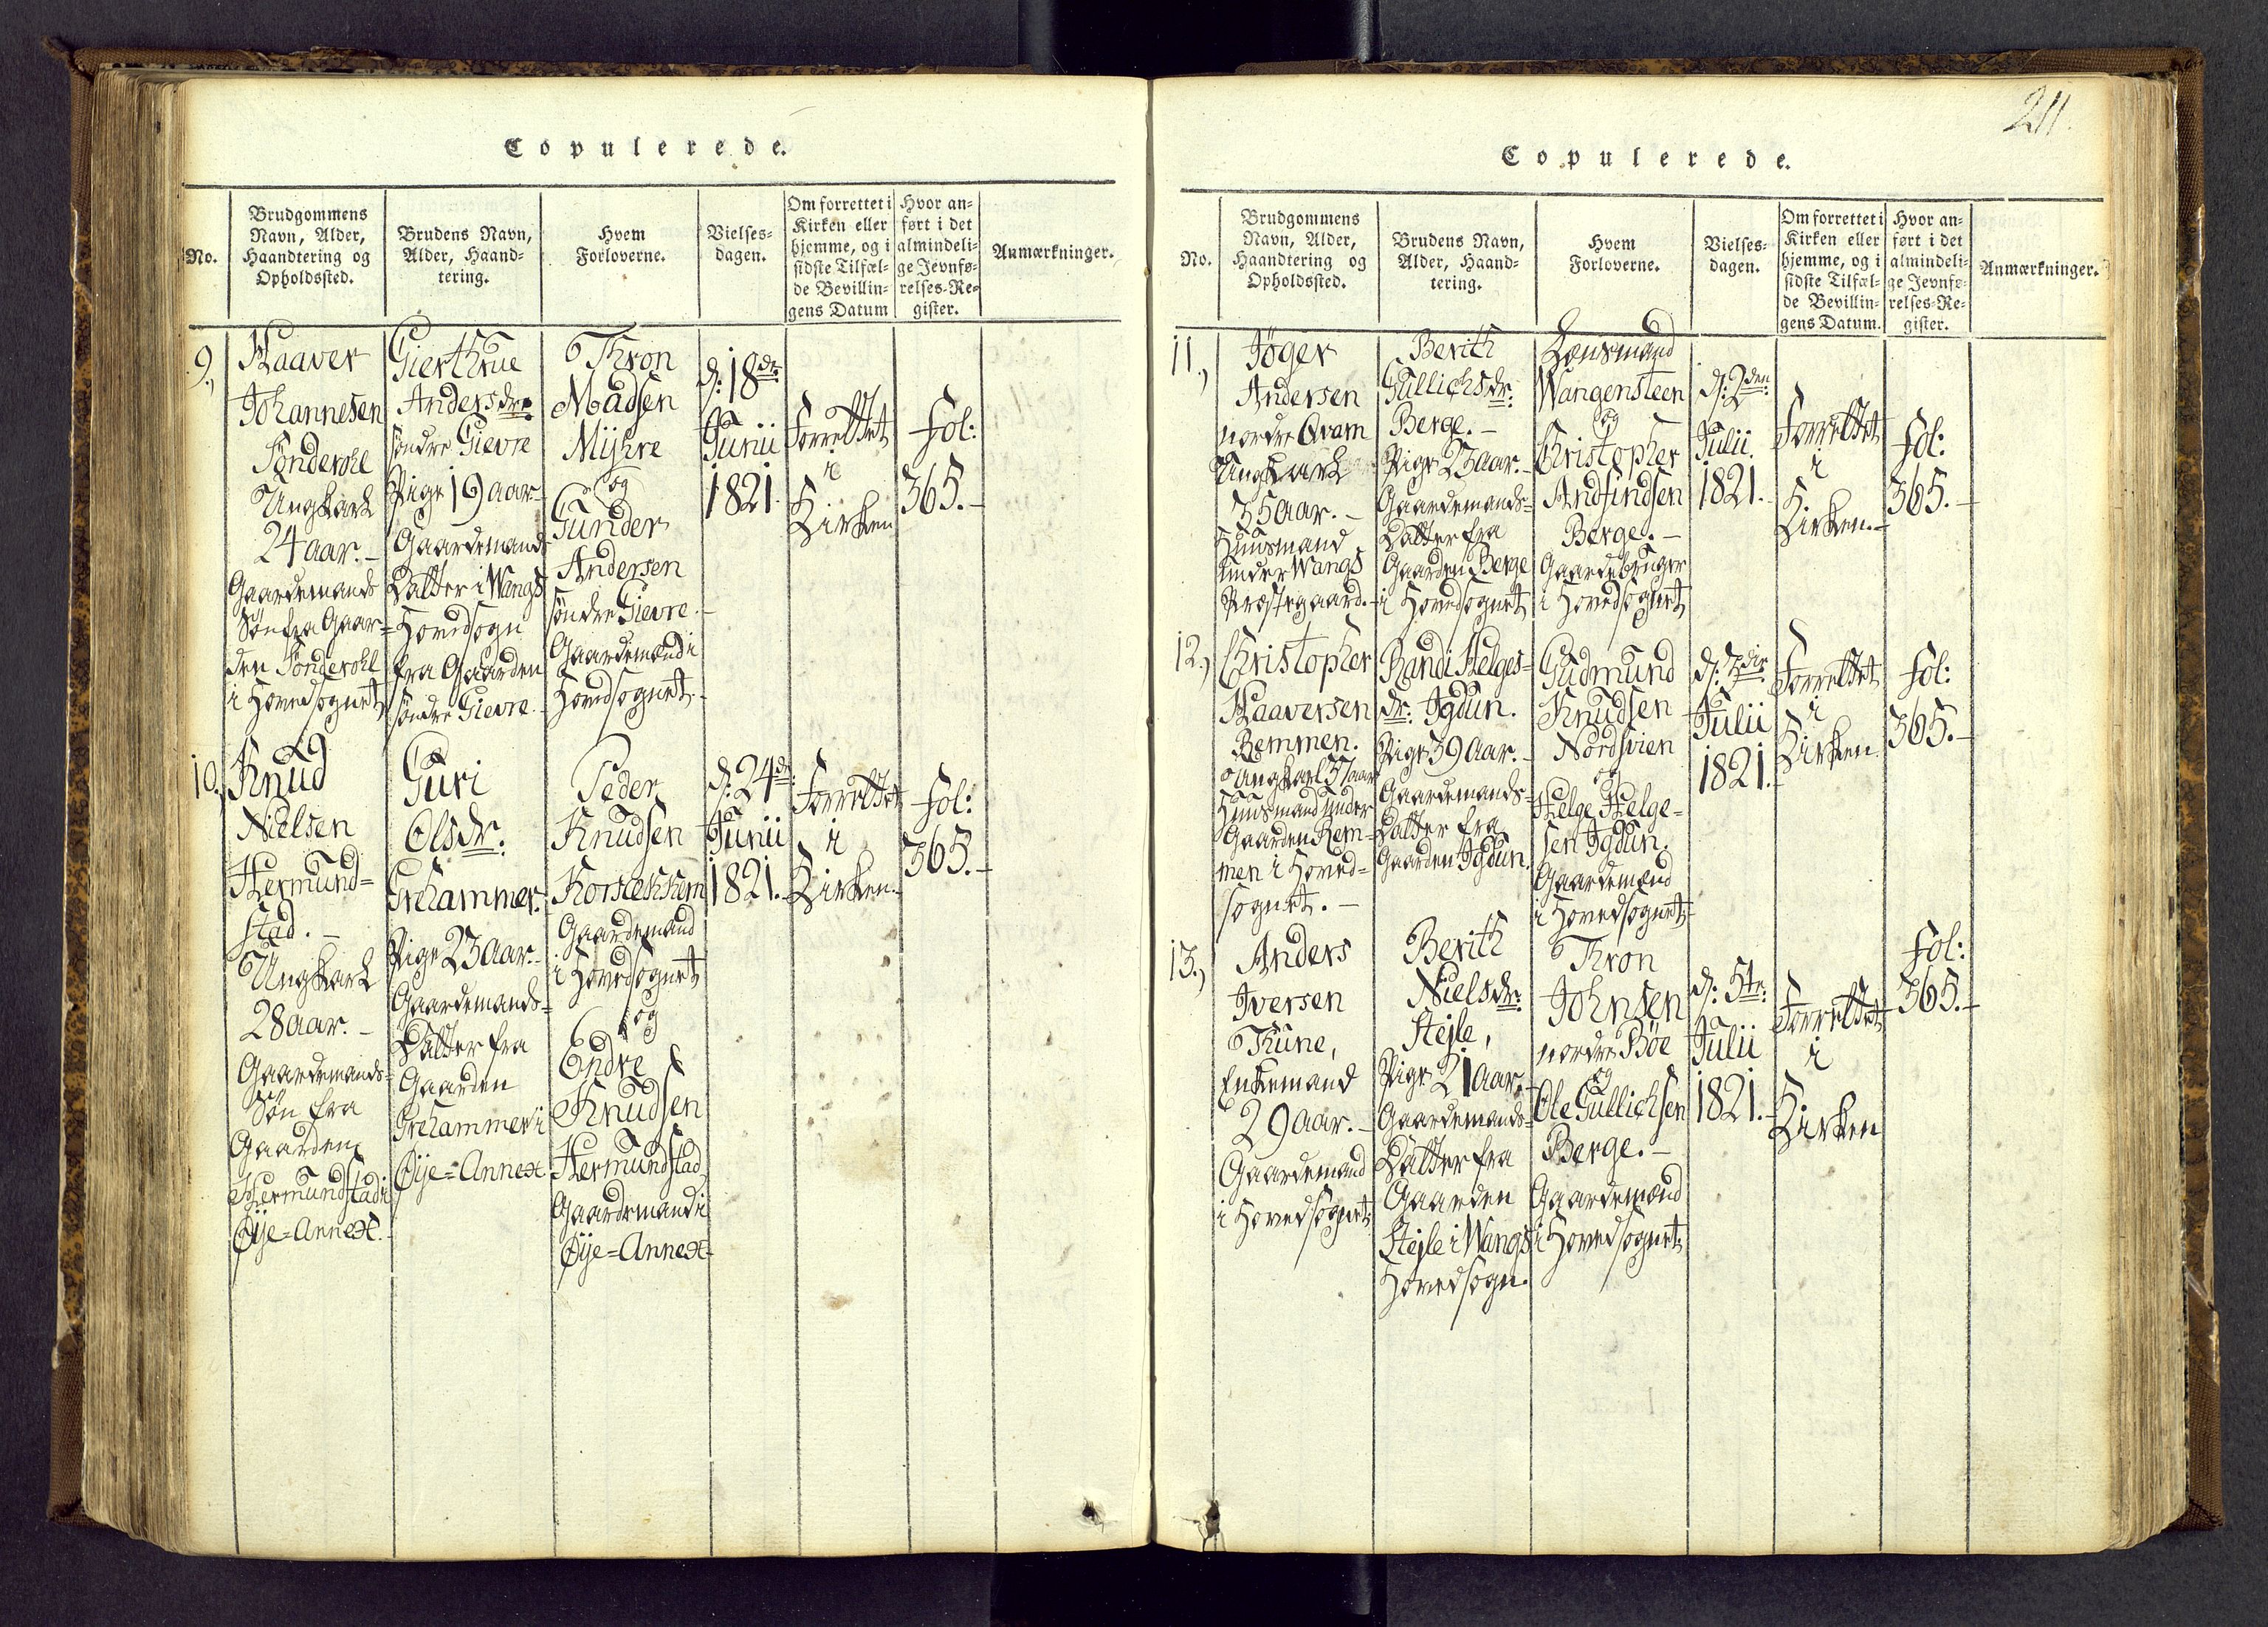 Copulerede.
No.
Brudgommens
Navn, Alder,
Haandtering og
Opholdssted.
Brudens Navn,
Alder, Haand=
tering.
Hvem
Forloverne.
Vielses=
dagen.
Om forrettet i
Kirken eller
hjemme, og i
sidste Tilfæl=
de Bevillin=
gens Datum
Hvor an=
ført i det
almindeli=
ge Jevnfø=
relses-Re=
gister.
Anmærkninger.
9.,
Haaver
Johannesen
Sönderohl
Ungkarl
24 aar. –
Gaardemands
Søn fra Gaar=
den Sönderohl
i Hovedsognet
Gierthrue
Andersdr.
søndre Gievre
Pige 19 aar
Gaardemands
Datter i Wangs
Hovedsogn
fra Gaarden
søndre Gievre.
Thron
Madsen
Myhre
og
Gunder
Andersen
søndre Gievre.
Gaardemænd i
Hovedsognet.
d: 18de
Junii
1821.
Forrettet
i
Kirken
Fol:
365. –
10.,
Knud
Nielsen
Hermund=
stad. –
Ungkarl
28 aar. –
Gaardemands=
Søn fra
Gaarden
Hermundstad i
Øije=Annex.
Guri
Olsdr.
Grehammer.
Pige 23 aar. –
Gaardemands=
Datter fra
Gaarden
Grehammer i
Øije=Annex
Peder
Knudsen
Gaardemand
i Hovedsognet
og
Endre
Knudsen
Hermundstad
Gaardemand i
Øije=Annex
d: 24de
Junii
1821.
Forrettet
i
Kirken.
Fol:
365. –
211.
Copulerede.
No.
Brudgommens
Navn, Alder,
Haandtering og
Opholdssted.
Brudens Navn,
Alder, Haand=
tering.
Hvem
Forloverne.
Vielses=
dagen.
Om forrettet i
Kirken eller
hjemme, og i
sidste Tilfæl=
de Bevillin=
gens Datum.
Hvor an=
ført i det
almindeli=
ge Jevnfø=
relses-Re=
gister.
Anmærkninger.
11.,
Jøger
Andersen
nordre Qvam
Ungkarl
35 aar. –
Huusmand
under Wangs
Præstegaard.
Berith
Gullichsdr:
Berge. –
Pige 23 aar. –
Gaardemands=
Datter fra
Gaarden Berge
i Hovedsognet
Lensmand
Wangensteen
og
Christopher
Andfindsen
Berge. –
Gaardebruger
i Hovedsognet
d: 2den
Julii
1821.
Forrettet
i
Kirken. –
Fol:
365. –
12.,
Christopher
Haaversen
Remmen.
Ungkarl 37 aar
Huusmand under
Gaarden Rem=
men i Hoved=
sognet. –
Randi Helges=
dr: Igdun.
Pige 39 Aar. –
Gaardemands=
Datter fra
Gaarden Igdun.
Gudmund
Knudsen
Nordsvien
og
Helge Helge=
sen Igdun.
Gaardemænd
i Hovedsognet
Julii
1821.
Forrettet
i
Kirken
Fol:
365. –
13.,
Anders
Iversen
Thune,
Enkemand
29 aar. –
Gaardemand
i Hovedsognet
Berith
Nielsdr:
Stejle,
Pige 21 aar. –
Gaardemands=
Datter fra
Gaarden
Stejle i Wangs
Hovedsogn.
Thron
Johnsen
nordre Böe
og
Ole Gullichsen
Berge. –
Gaardemænd
i Hovedsognet
d: 5te
Julii
1821. –
Forrettet
i
Kirken
Fol:
365. –